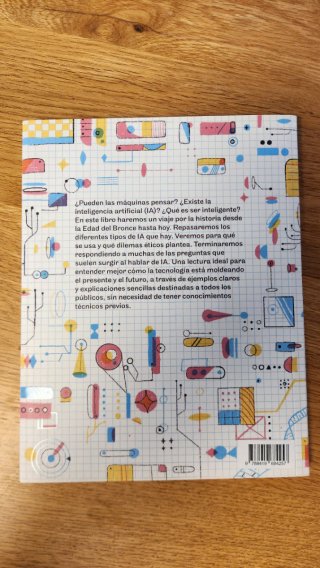 ¿Pueden las máquinas pensar? ¿Existe la
inteligencia artificial (IA)? ¿Qué es ser inteligente?
En este libro haremos un viaje por la historia desde
la Edad del Bronce hasta hoy. Repasaremos los
diferentes tipos de IA que hay. Veremos para qué
se usa y qué dilemas éticos plantea. Terminaremos
respondiendo a muchas de las preguntas que
suelen surgir al hablar de IA. Una lectura ideal para
entender mejor cómo la tecnología está moldeando
el presente y el futuro, a través de ejemplos claros
y explicaciones sencillas destinadas a todos los
públicos, sin necesidad de tener conocimientos
técnicos previos.